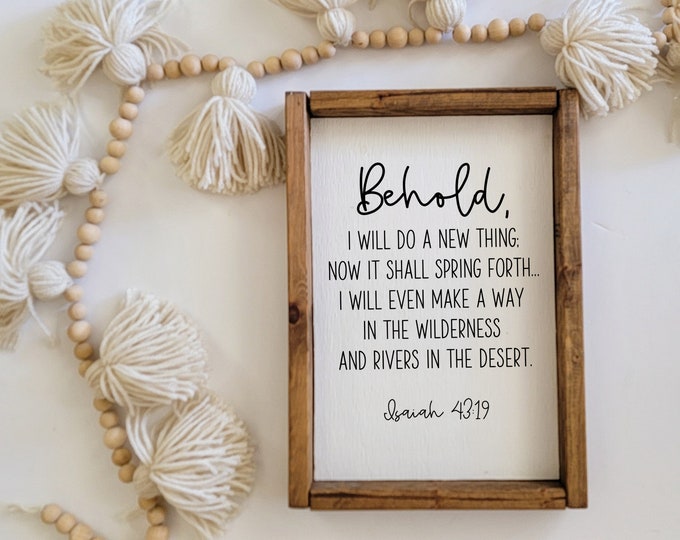 Behold,
I WILL DO A NEW THING;
NOW IT SHALL SPRING FORTH...
I WILL EVEN MAKE A WAY
IN THE WILDERNESS
AND RIVERS IN THE DESERT.
Isaiah 43:19